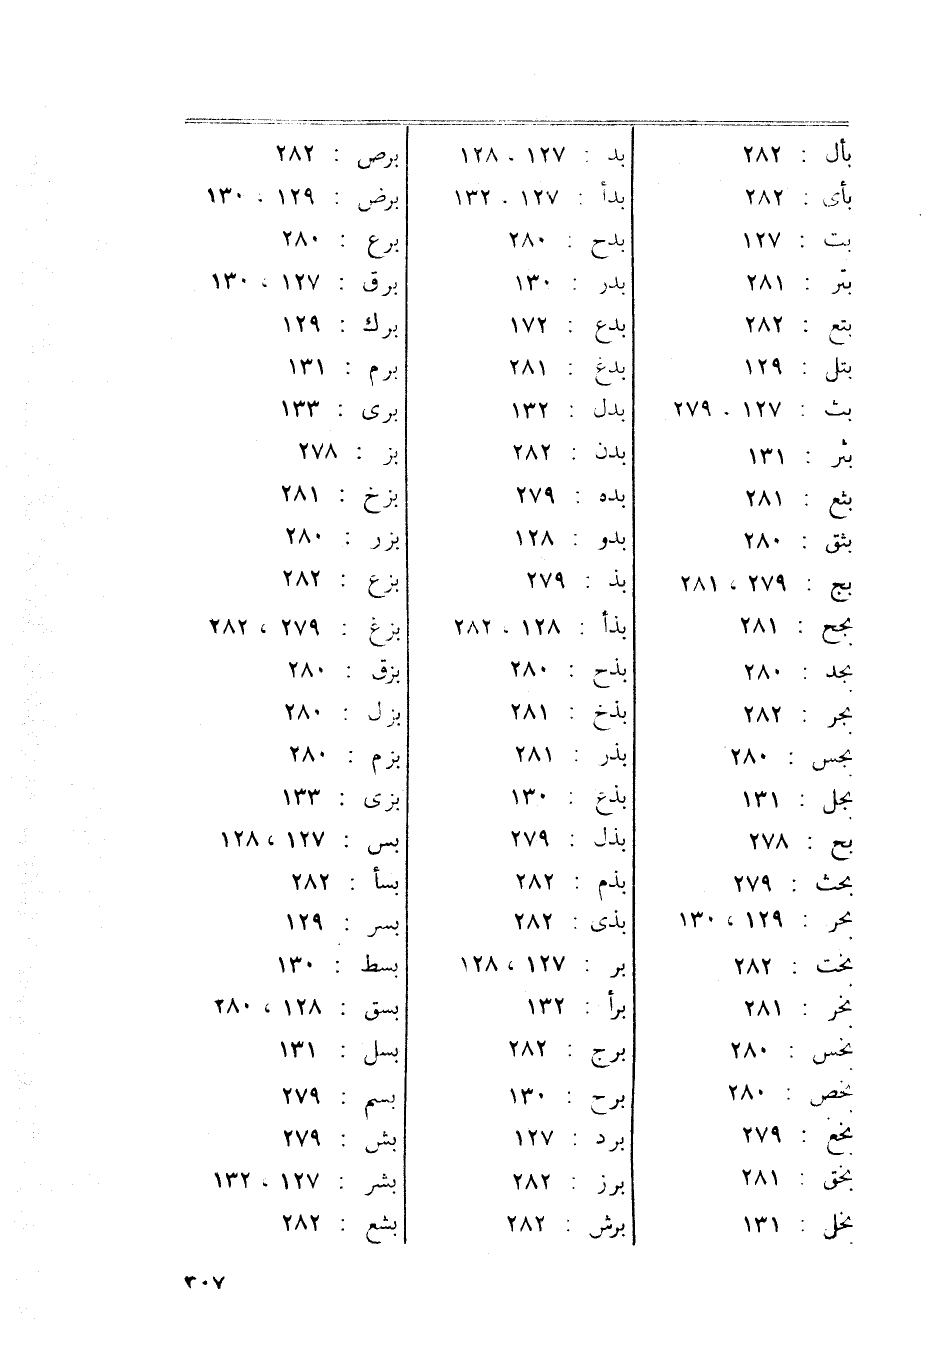 بأل : ٢٨٢
بأى : ٢٨٢
بت : ١٢٧
بتر : ٢٨١
بتع : ٢٨٢
بتل : ١٢٩
بث : ١٢٧ ، ٢٧٩
بثر : ١٣١
بثع : ٢٨١
بثق : ٢٨٠
بج : ٢٧٩ ، ٢٨١
بجح : ٢٨١
بجد : ٢٨٠
بجر : ٢٨٢
بجس : ٢٨٠
بجل : ١٣١
بح : ٢٧٨
بحث : ٢٧٩
بحر : ١٢٩ ، ١٣٠
بخت : ٢٨٢
بخر : ٢٨١
بخس : ٢٨٠
بخص : ٢٨٠
بخع : ٢٧٩
بخق : ٢٨١
بخل : ١٣١
بد : ١٢٧ ، ١٢٨
بدأ : ١٢٧ ، ١٣٢
بدح : ٢٨٠
بدر : ١٣٠
بدع : ١٧٢
بدغ : ٢٨١
بدل : ١٣٢
بدن : ٢٨٢
بده : ٢٧٩
بدو : ١٢٨
بذ : ٢٧٩
بذأ : ١٢٨ ، ٢٨٢
بذح : ٢٨٠
بذخ : ٢٨١
بذر : ٢٨١
بذع : ١٣٠
بذل : ٢٧٩
بذم : ٢٨٢
بذى : ٢٨٢
بر : ١٢٧ ، ١٢٨
برأ : ١٣٢
برج : ٢٨٢
برح : ١٣٠
برد : ١٢٧
برز : ٢٨٢
برش : ٢٨٢
برص : ٢٨٢
برض : ١٢٩ ، ١٣٠
برع : ٢٨٠
برق : ١٢٧ ، ١٣٠
برك : ١٢٩
برم : ١٣١
برى : ١٣٣
بز : ٢٧٨
بزخ : ٢٨١
بزر : ٢٨٠
بزع : ٢٨٢
بزغ : ٢٧٩ ، ٢٨٢
بزق : ٢٨٠
بزل : ٢٨٠
بزم : ٢٨٠
بزى : ١٣٣
بس : ١٢٧ ، ١٢٨
بسأ : ٢٨٢
بسر : ١٢٩
بسط : ١٣٠
بسق : ١٢٨ ، ٢٨٠
بسل : ١٣١
بسم : ٢٧٩
بش : ٢٧٩
بشر : ١٢٧ ، ١٣٢
بشع : ٢٨٢
٣٠٧